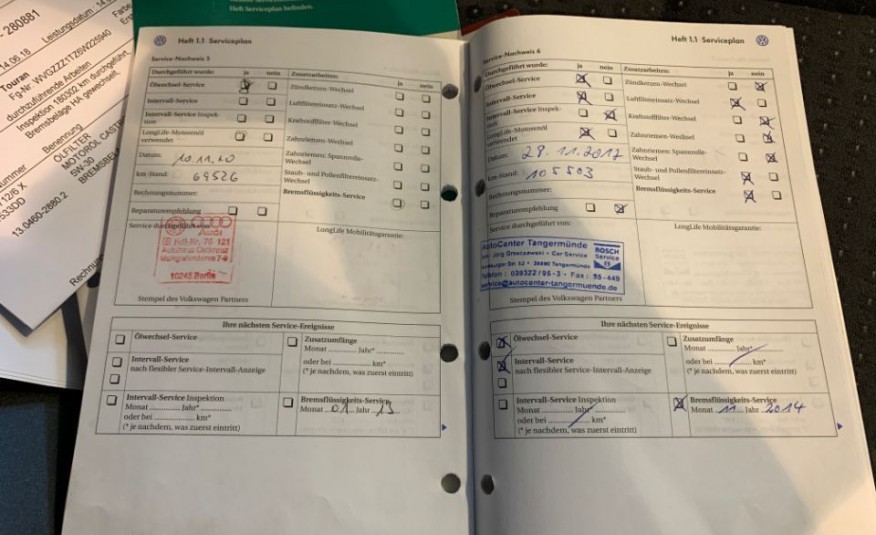 280881
14.06.18
Leistungsdatum : 14.0
Touran
Fg-Nr. WVGZZZ1TZ5W225940
durchzuführende Arbeiten
Inspektion 180302 km durchgeführt,
Bremsbeläge HA gewechselt.
Benennung
ÖLFILTER
MOTORÖL CASTR
5W-30
BREMSBE
13.0460-2880.2
Heft Serviceplan befinden.
Heft 1.1 Serviceplan
Service-Nachweis 5
Durchgeführt wurde: ja nein
Ölwechsel-Service
Intervall-Service
Intervall-Service Inspek-
tion
LongLife-Motorenöl
verwendet
Datum: 10.11.10
km-Stand: 69526
Rechnungsnummer:
Reparaturempfehlung
Zusatzarbeiten: ja nein
Zündkerzen-Wechsel
Luftfiltereinsatz-Wechsel
Kraftstofffilter-Wechsel
Zahnriemen-Wechsel
Zahnriemen: Spannrolle-
Wechsel
Staub- und Pollenfiltereinsatz-
Wechsel
Bremsflüssigkeits-Service
Service durchgeführt von:
Audi
10245 Berlin
LongLife Mobilitätsgarantie:
Stempel des Volkswagen Partners
Ihre nächsten Service-Ereignisse
Ölwechsel-Service
Intervall-Service
nach flexibler Service-Intervall-Anzeige
Intervall-Service Inspektion
Monat ........ Jahr* ........
oder bei ........ km*
(* je nachdem, was zuerst eintritt)
Zusatzumfänge
Monat ........ Jahr* ........
oder bei ........ km*
(* je nachdem, was zuerst eintritt)
Bremsflüssigkeits-Service
Monat 01 Jahr 13
Heft 1.1 Serviceplan
Service-Nachweis 6
Durchgeführt wurde: ja nein
Ölwechsel-Service
Intervall-Service
Intervall-Service Inspek-
tion
LongLife-Motorenöl
verwendet
Datum: 28.11.2012
km-Stand: 105503
Rechnungsnummer:
Reparaturempfehlung
Zusatzarbeiten: ja nein
Zündkerzen-Wechsel
Luftfiltereinsatz-Wechsel
Kraftstofffilter-Wechsel
Zahnriemen-Wechsel
Zahnriemen: Spannrolle-
Wechsel
Staub- und Pollenfiltereinsatz-
Wechsel
Bremsflüssigkeits-Service
Service durchgeführt von:
AutoCenter Tangermünde
Car Service
39590 Tangermünde
Telefon : 039322/95-3 • Fax : 95-449
service@autocenter-tangermuende.de
BOSCH
Service
LongLife Mobilitätsgarantie:
Stempel des Volkswagen Partners
Ihre nächsten Service-Ereignisse
Ölwechsel-Service
Intervall-Service
nach flexibler Service-Intervall-Anzeige
Intervall-Service Inspektion
Monat ........ Jahr* ........
oder bei ........ km*
(* je nachdem, was zuerst eintritt)
Zusatzumfänge
Monat ........ Jahr* ........
oder bei ........ km*
(* je nachdem, was zuerst eintritt)
Bremsflüssigkeits-Service
Monat 11 Jahr 2014